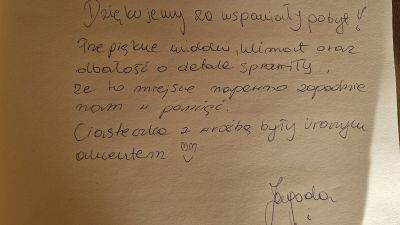 Dziękujemy za wspaniały pobyt!
Przepiękne widoki, klimat oraz
dbałość o detale sprawiły,
że to miejsce napewno zapadnie
nam w pamięć.
Ciasteczka z wróżbą były uroczym
akcentem
Jagoda
i